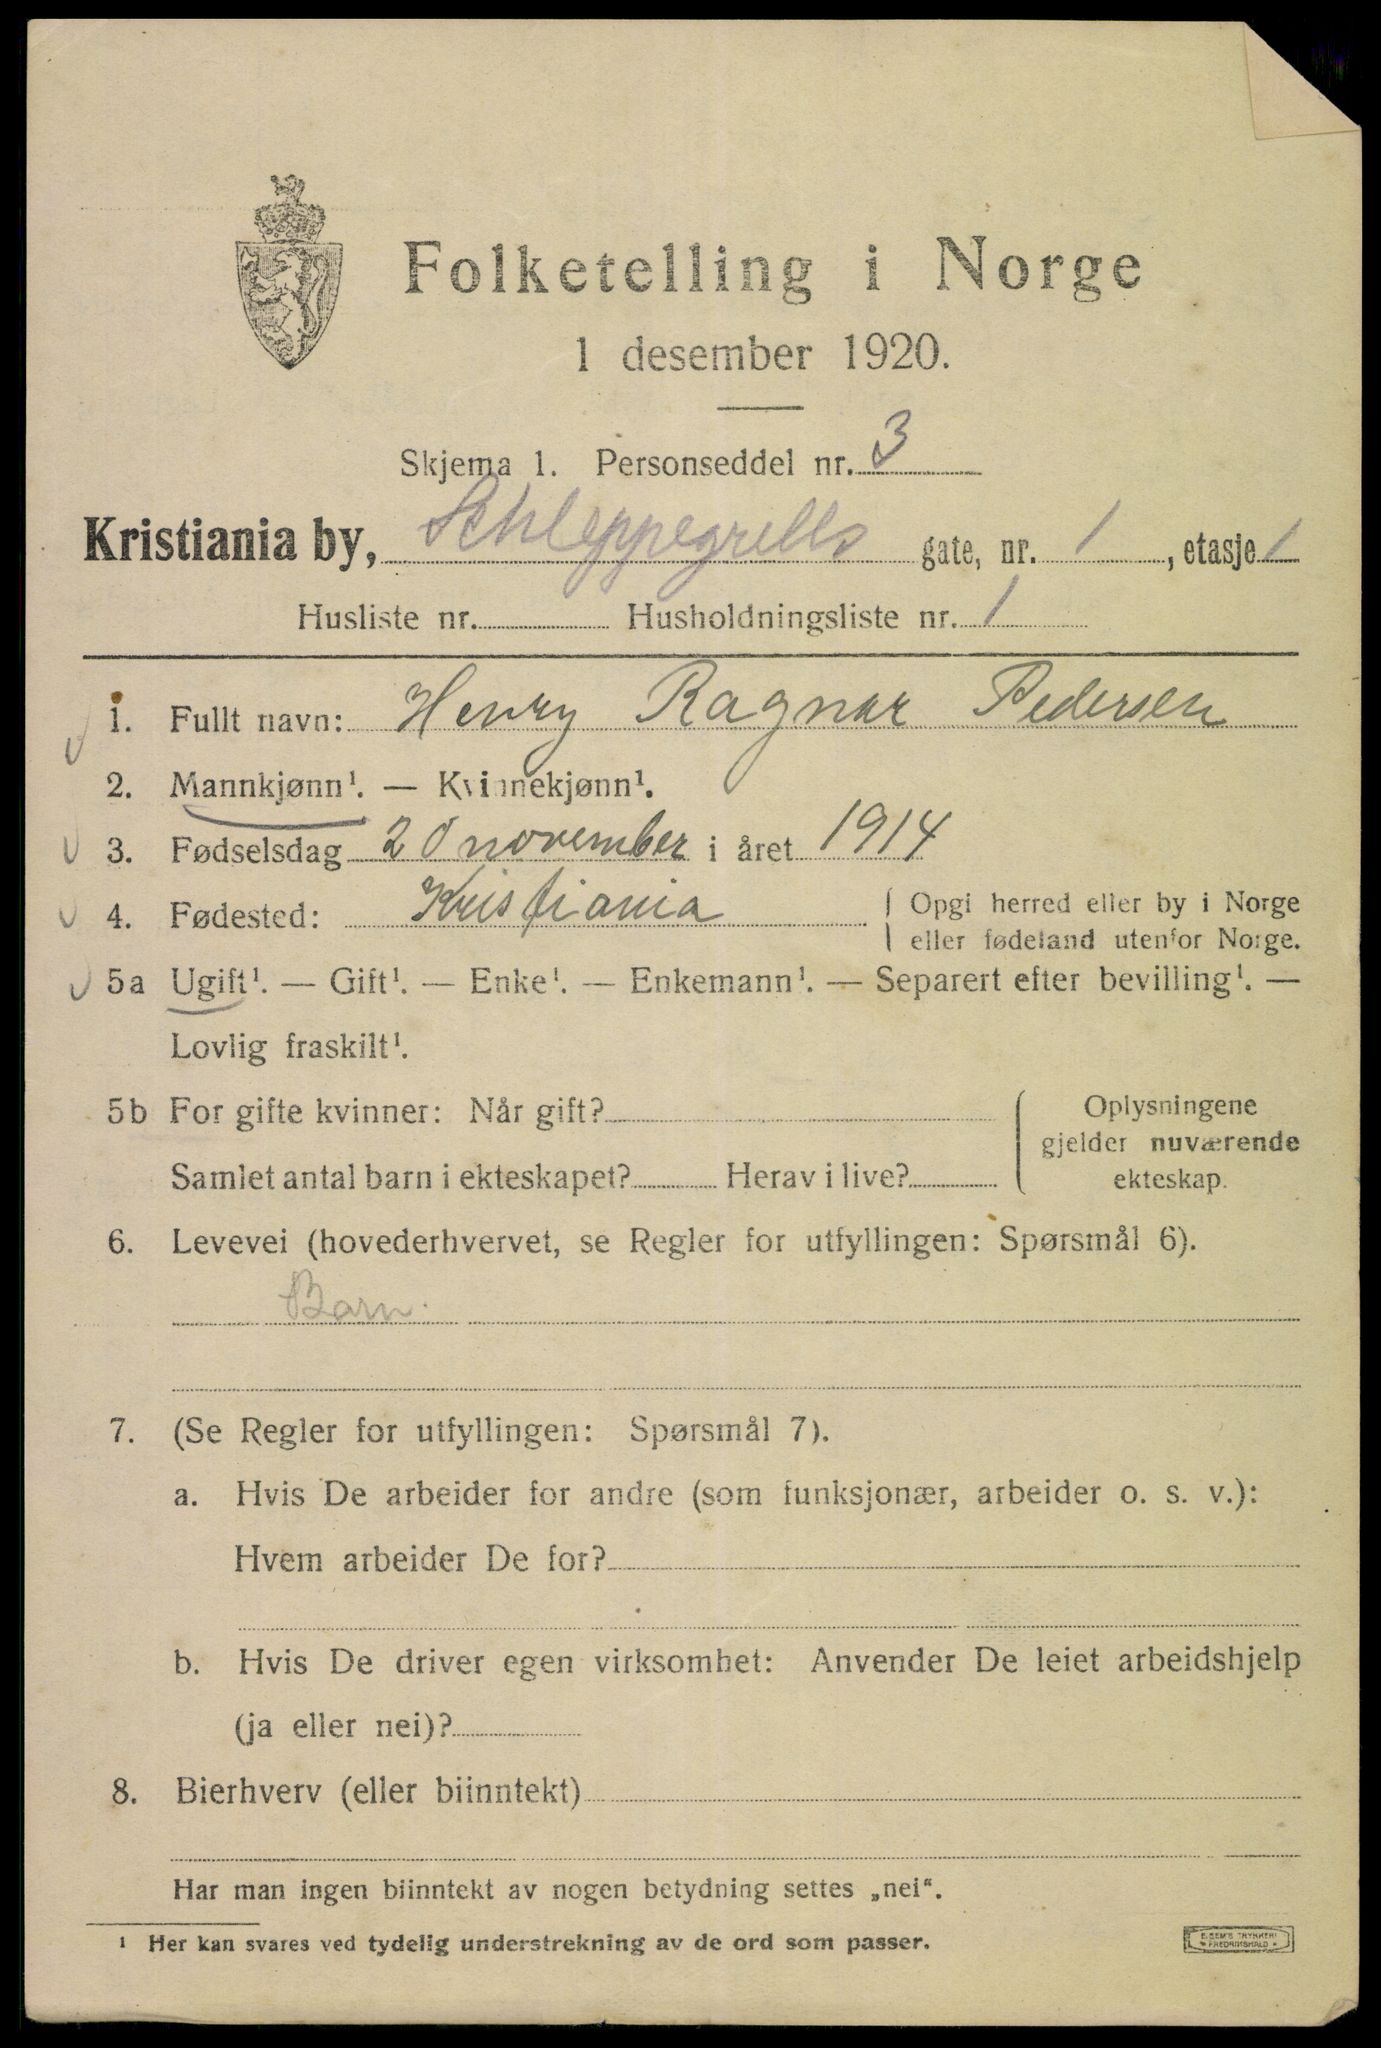 Folketelling i Norge
1 desember 1920.
Skjema 1. Personseddel nr. 3
Kristiania by, Schleppegrells gate, nr. 1, etasje 1
Husliste nr. Husholdningsliste nr. 1
1. Fullt navn: Henry Ragnar Pedersen
2. Mannkjønn¹. — Kvinnekjønn¹.
3. Fødselsdag 20 november i året 1914
4. Fødested: Kristiania { Opgi herred eller by i Norge
eller fødeland utenfor Norge.
5a Ugift¹. — Gift¹. — Enke¹. — Enkemann¹. — Separert efter bevilling¹. —
Lovlig fraskilt¹.
5b For gifte kvinner: Når gift?
Samlet antal barn i ekteskapet? Herav i live?
Oplysningene
gjelder nuværende
ekteskap.
6. Levevei (hovederhvervet, se Regler for utfyllingen: Spørsmål 6).
Barn.
7. (Se Regler for utfyllingen: Spørsmål 7).
a. Hvis De arbeider for andre (som funksjonær, arbeider o. s. v.):
Hvem arbeider De for?
b. Hvis De driver egen virksomhet: Anvender De leiet arbeidshjelp
(ja eller nei)?
8. Bierhverv (eller biinntekt)
Har man ingen biinntekt av nogen betydning settes „nei“.
¹ Her kan svares ved tydelig understrekning av de ord som passer.
E. SEM'S TRYKKERI
FREDRIKSHALD